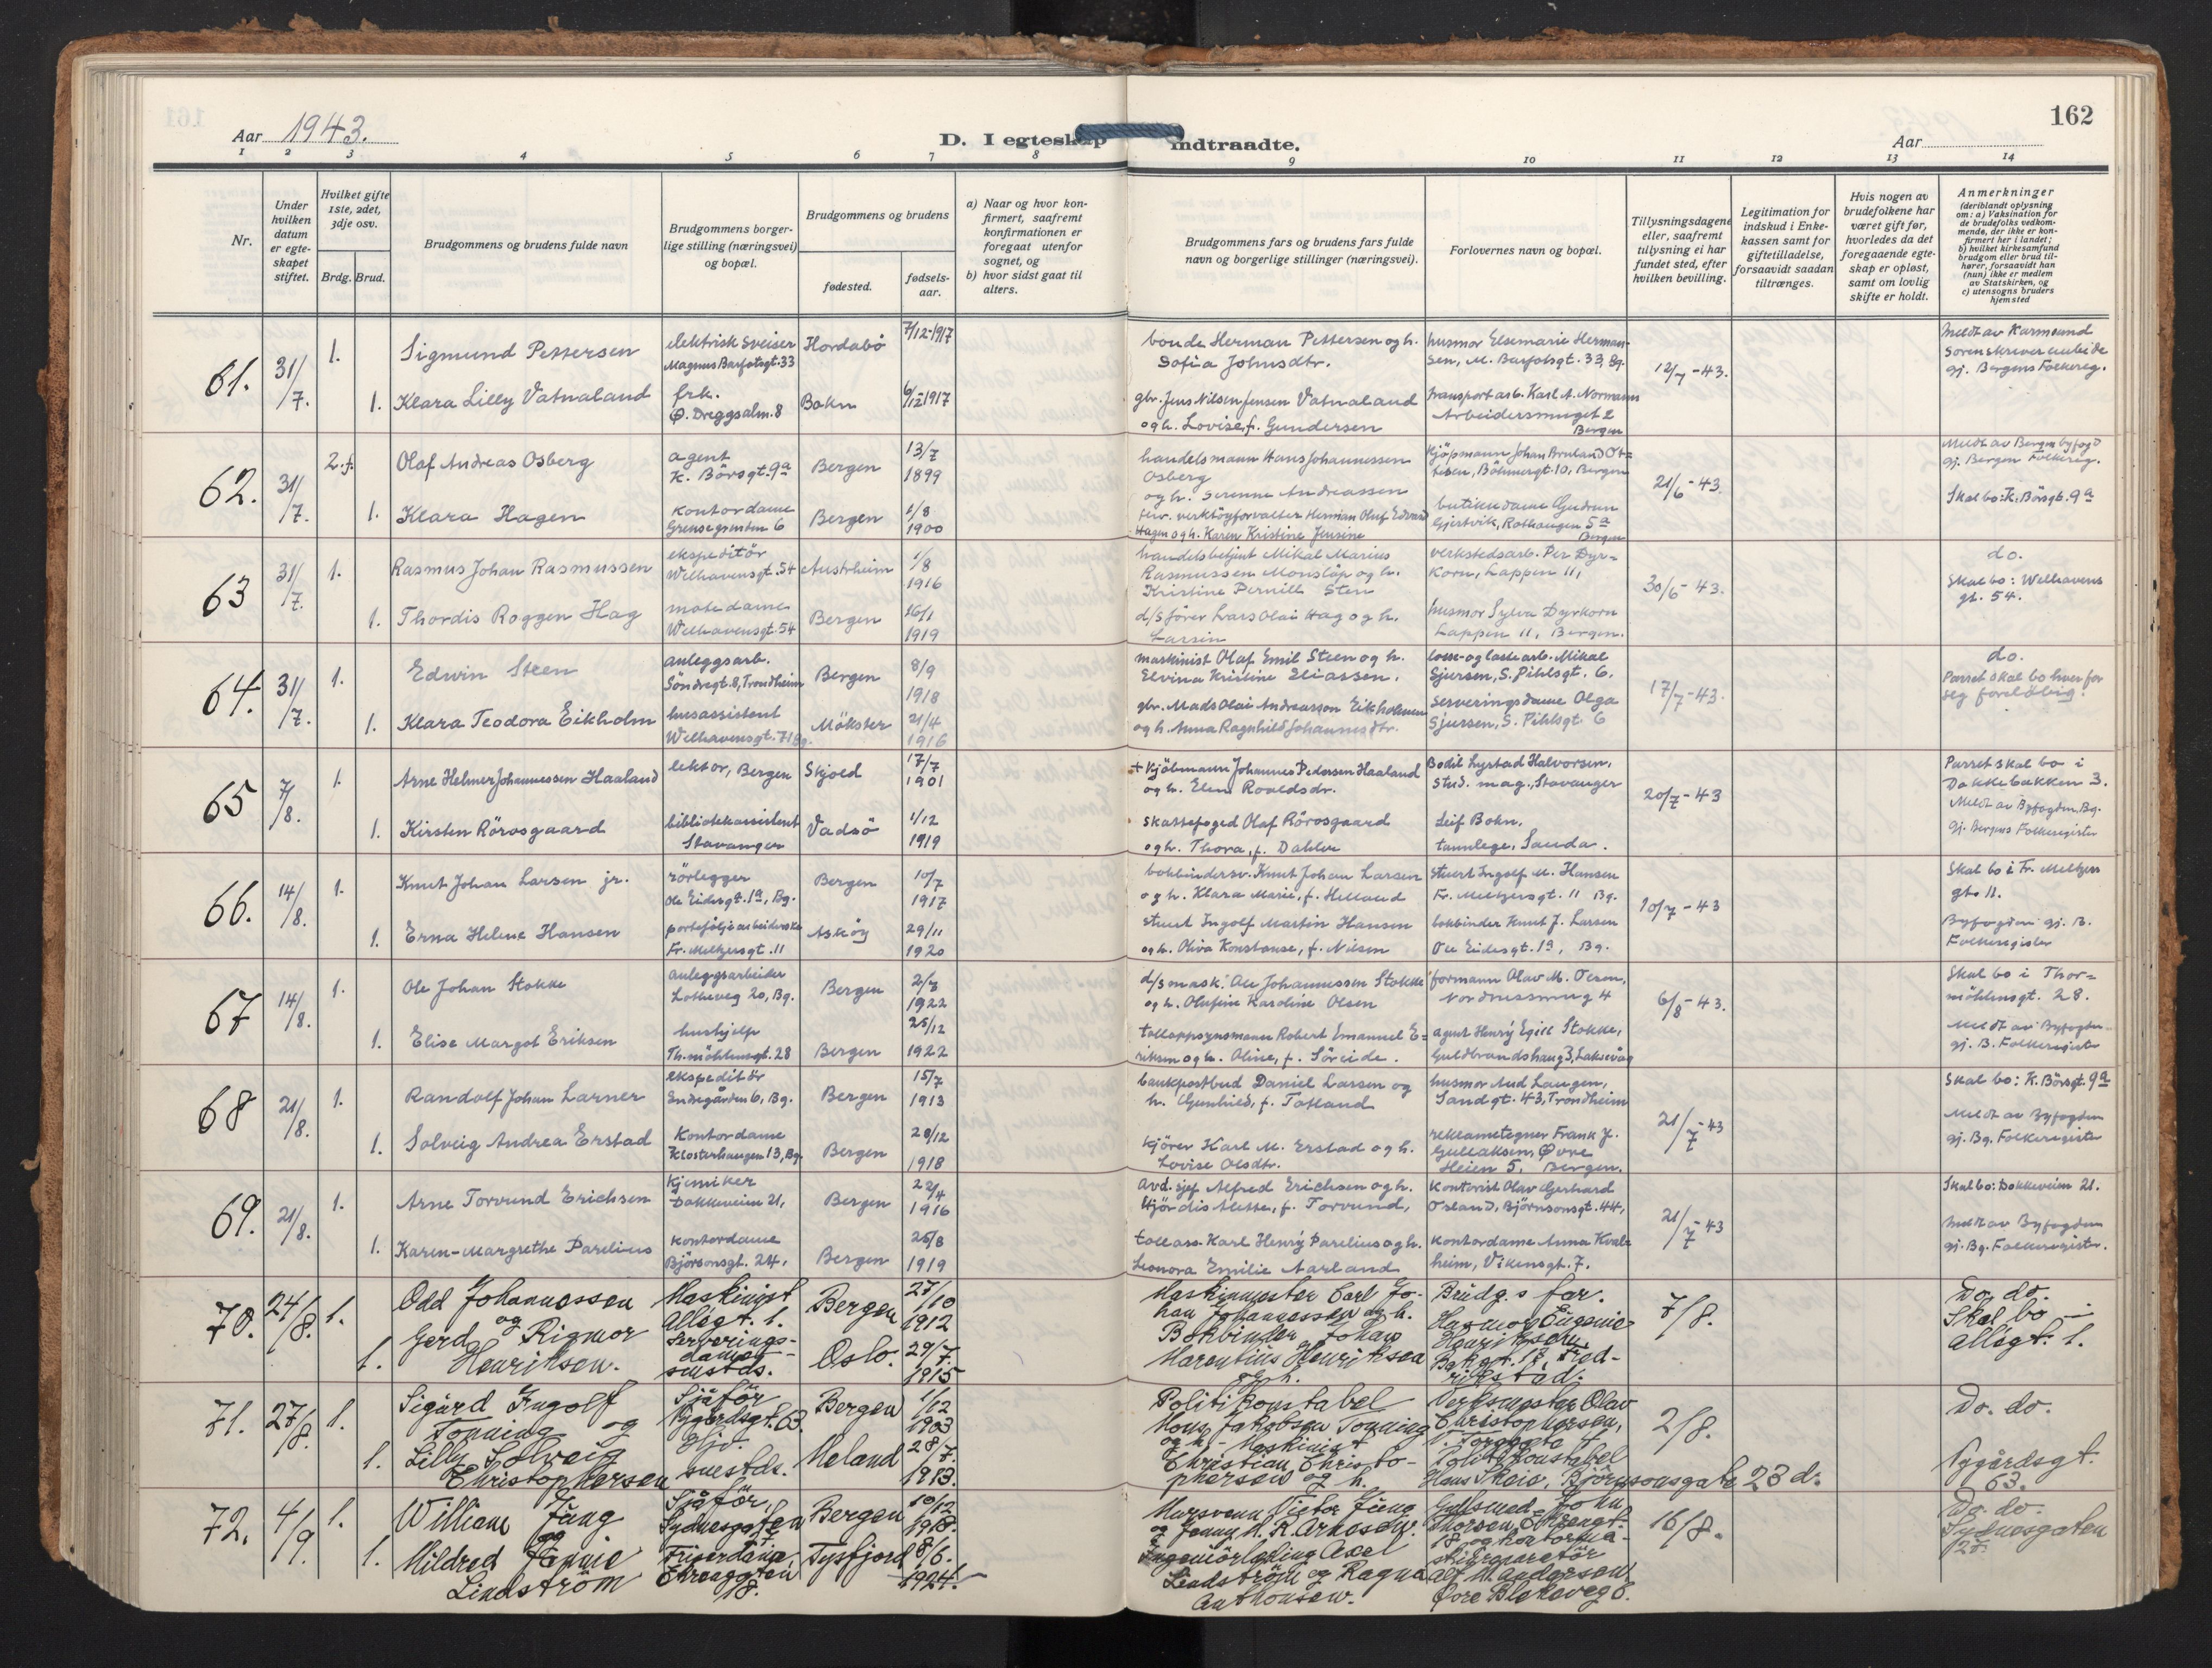 162
Aar 1943.
D. I egteskap indtraadte.
Aar
1 2 3 4 5 6 7 8 9 10 11 12 13 14
Nr.
Under hvilken datum er egteskapet stiftet.
Hvilket gifte 1ste, 2det, 3dje osv.
Brdg. Brud.
Brudgommens og brudens fulde navn
Brudgommens borgerlige stilling (næringsvei) og bopæl.
Brudgommens og brudens
fødested.
fødselsaar.
a) Naar og hvor konfirmert, saafremt konfirmationen er foregaat utenfor sognet, og
b) hvor sidst gaat til alters.
Brudgommens fars og brudens fars fulde navn og borgerlige stillinger (næringsvei).
Forlovernes navn og bopæl.
Tillysningsdagene eller, saafremt tillysning ei har fundet sted, efter hvilken bevilling.
Legitimation for indskud i Enkekassen samt for giftetilladelse, forsaavidt saadan tiltrænges.
Hvis nogen av brudefolkene har været gift før, hvorledes da det foregaaende egteskap er opløst, samt om lovlig skifte er holdt.
Anmerkninger
(deriblandt oplysning om: a) Vaksination for de brudefolks vedkommende, der ikke er konfirmert her i landet; b) hvilket kirkesamfund brudgom eller brud tilhører, forsaavidt han (hun) ikke er medlem av Statskirken, og c) utensogns bruders hjemsted
61. 31/7. 1. Sigmund Pettersen elektrisk sveiser Magnus Barfotsgt. 33 Hordabö 7/12-1917 bonde Herman Pettersen og h. Sofia Johnsdtr. husmor Elsemarie Hermansen, M. Barfotsgt. 33, Bg. 12/7-43. Meldt av Karmsund Sorenskriverembede gj. Bergens Folkereg.
1. Klara Lilly Vatnaland frk. Ø. Dreggsalm. 8 Bokn 6/12-1917 gbr. Jens Nilsen Jensen Vatnaland og h. Lovise, f. Gundersen transportarb. Karl A. Normann Arbeidersmuget 2 Bergen
62. 31/7. 2. f. Olaf Andreas Osberg agent K. Börsgt. 9a Bergen 13/7 1899 handelsmann Hans Johannessen Osberg og h. Serenne Andreassen Kjöpmann Johan Bruland Ottesen, Böhmergt. 10, Bergen 21/6-43. Meldt av Bergen byfogd gj. Bergen Folkereg.
1. Klara Hagen kontordame Grensegrenden 6 Bergen 1/8 1900 fhv. verktöyforvalter Herman Oluf Edvard Hagen og h. Karen Kristine Jensine butikkdame Gudrun Gjertvik, Rothaugen 5a Bergen Skal bo: K. Börsgt. 9a
63 31/7. 1. Rasmus Johan Rasmussen ekspeditör Welhavensgt. 54 Austrheim 1/8 1916 handelsbetjent Mikal Marius Rasmussen Monslöp og h. Kristine Pernill Sten verkstedsarb. Per Dyrkorn, Lappen 11, 30/6-43. do. Skal bo: Welhavens gt. 54.
1. Thordis Roggen Hag motedame Welhavensgt. 54 Bergen 16/1 1919 d/s förer Lars Olai Hag og h. Larsin husmor Sylva Dyrkorn Lappen 11, Bergen.
64. 31/7. 1. Edwin Steen anleggsarb. Söndregt. 8, Trondheim Bergen 8/9 1918 maskinist Olaf Emil Steen og h. Elvina Kristine Eliassen. losse- og lastearb. Mikal Sjursen, S. Pihlsgt. 6. 17/7-43. do. Parret skal bo hver for seg foreløbig.
1. Klara Teodora Eikholm husassistent Welhavensgt. 71 Bg. Mökster 21/4 1916 gbr. Mads Olai Andreasson Eikholmen og h. Anna Ragnhild Johannesdtr. serveringsdame Olga Sjursen, S. Pihlsgt. 6
65 7/8. 1. Arne Helmer Johannessen Haaland lektor, Bergen Skjold 17/7 1901 + Kjöbmann Johannes Pedersen Haaland og h. Elen Roaldsdr. Bodil Lystad Halvorsen, stud. mag., Stavanger 20/7-43 Parret skal bo i Dokkebakken 3.
1. Kirsten Rörosgaard bibliotekassistent Stavanger Vadsö 1/12 1919 skattefoged Olaf Rörosgaard og h. Thora, f. Dahlen Leif Bokn, tannlege, Sauda. Meldt av Byfogden, Bg. gj. Bergens Folkeregister
66. 14/8. 1. Knut Johan Larsen jr. rörlegger Ole Eidesgt. 1a, Bg. Bergen 10/7 1917 bokbindersv. Knut Johan Larsen og h. Klara Marie, f. Helland stuert Ingolf M. Hansen Fr. Meltzersgt. 11 Bg. 10/7-43 Skal bo i Fr. Meltzers gt. 11.
1. Erna Helene Hansen porteföljearbeiderske Fr. Meltzersgt. 11 Asköy 29/11 1920 stuert Ingolf Martin Hansen og h. Oliva Konstanse, f. Nilsen bokbinder Knut J. Larsen Ole Eidesgt. 1a, Bg. Byfogden gj. B. Folkeregister
67 14/8. 1. Ole Johan Stokke anleggsarbeider Lotheveg 20, Bg. Bergen 2/3 1922 d/s mask. Ole Johannessen Stokke og h. Olufine Karoline Olsen formann Olav M. Olsen, Nordnessmug 4 6/8-43. Skal bo i Thormöhlensgt. 28.
1. Elise Margot Eriksen hushjelp Th.möhlensgt. 28 Bergen 25/12 1922 tolloppsynsmann Robert Emanuel Eriksen og h. Oline, f. Söreide. agent Henrÿ Egill Stokke, Guldbrandshaug 3, Laksevåg Meldt av Byfogden gj. B. Folkeregister
68 21/8. 1. Randolf Johan Larner ekspeditör Endregården 6, Bg. Bergen 15/7 1913 bankpostbud Daniel Larsen og h. Gunhild, f. Totland husmor Aud Laugen, Sandgt. 43, Trondheim 21/7-43 Skal bo: K. Börsgt. 9a
1. Solveig Andrea Erstad Kontordame Klosterhaugen 13, Bg. Bergen 20/12 1918 kjörer Karl M. Erstad og h. Lovise Olsdtr. reklametegner Frank J. Gullaksen, Øvre Heien 5, Bergen. Meldt av Byfogden gj. Bg. Folkeregister
69. 21/8. 1. Arne Torvund Erichsen kjemiker Dokkeveien 21, Bergen 22/4 1916 avd. sjef Alfred Erichsen og h. Hjördis Alette, f. Torvund, kontorist Olav Gerhard Osland, Björnsonsgt. 44, 21/7-43 Skal bo: Dokkeveien 21.
1. Karen-Margrethe Parelius kontordame Björnsonsgt. 24, Bergen 25/8 1919 tollass. Karl Henrÿ Parelius og h. Leonora Emilie Aarland kontordame Anna Kvalheim, Vikensgt. 7. Meldt av Byfogden gj. Bg. Folkeregister.
70. 24/8. 1. Odd Johannessen og Maskinist Allégt. 1. Bergen 27/10 1912 Maskinmester Carl Johan Johannessen og h. Brudg.s far. 7/8. Do. do. Skal bo i Allégt. 1.
1. Gerd Rigmor Henriksen. Serveringsdame smstds. Oslo. 29/7. 1915 Bokbinder Johan Marentius Henriksen og h. Husmor Eugenie Henriksen, Bakgt. 17, Fredrikstad.
71. 27/8. 1. Sigurd Ingolf Tonning og Sjåför Nygårdsgt. 63. Bergen 1/12 1903 Politikonstabel Hans Jakobsen Tonning og h. Verksmester Olav Christophersen, V. Torggate 2/8. Do. do.
1. Lilly Solveig Christophersen smstds. Meland 28/7. 1913. Maskinist Christian Christophersen og h. Politikonstabel Hans Skeie, Björnsonsgate 23 d. Nygårdsgt. 63.
72. 4/9. 1. William Jung og Sjåför, Sydnesgaten Bergen 10/12 1918. Mursvenn Victor Jung og Jenny M. R. Arnesen. Gullsmed John Thorsen, 16/8. Do. do. Sydnesgaten
1. Mildred Jennie Lindström Friserdame, Tysfjord 8/6. 1924. Ingeniör Axel Lindström og Ragna Anthonsen. Alf M. Andersen, Øvre Blekeveg 8.